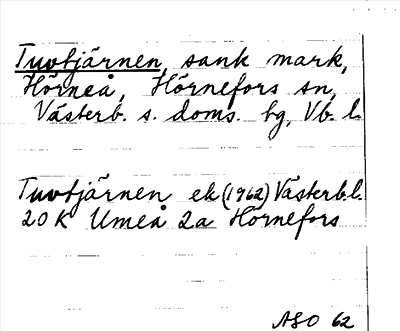 Tuvtjärnen, sank mark,
Hörneå, Hörnefors sn,
Västerb. s. doms. tg, Vb. l.
Tuvtjärnen ek (1962) Västerb.l.
20K Umeå 2a Hörnefors
ASO 62